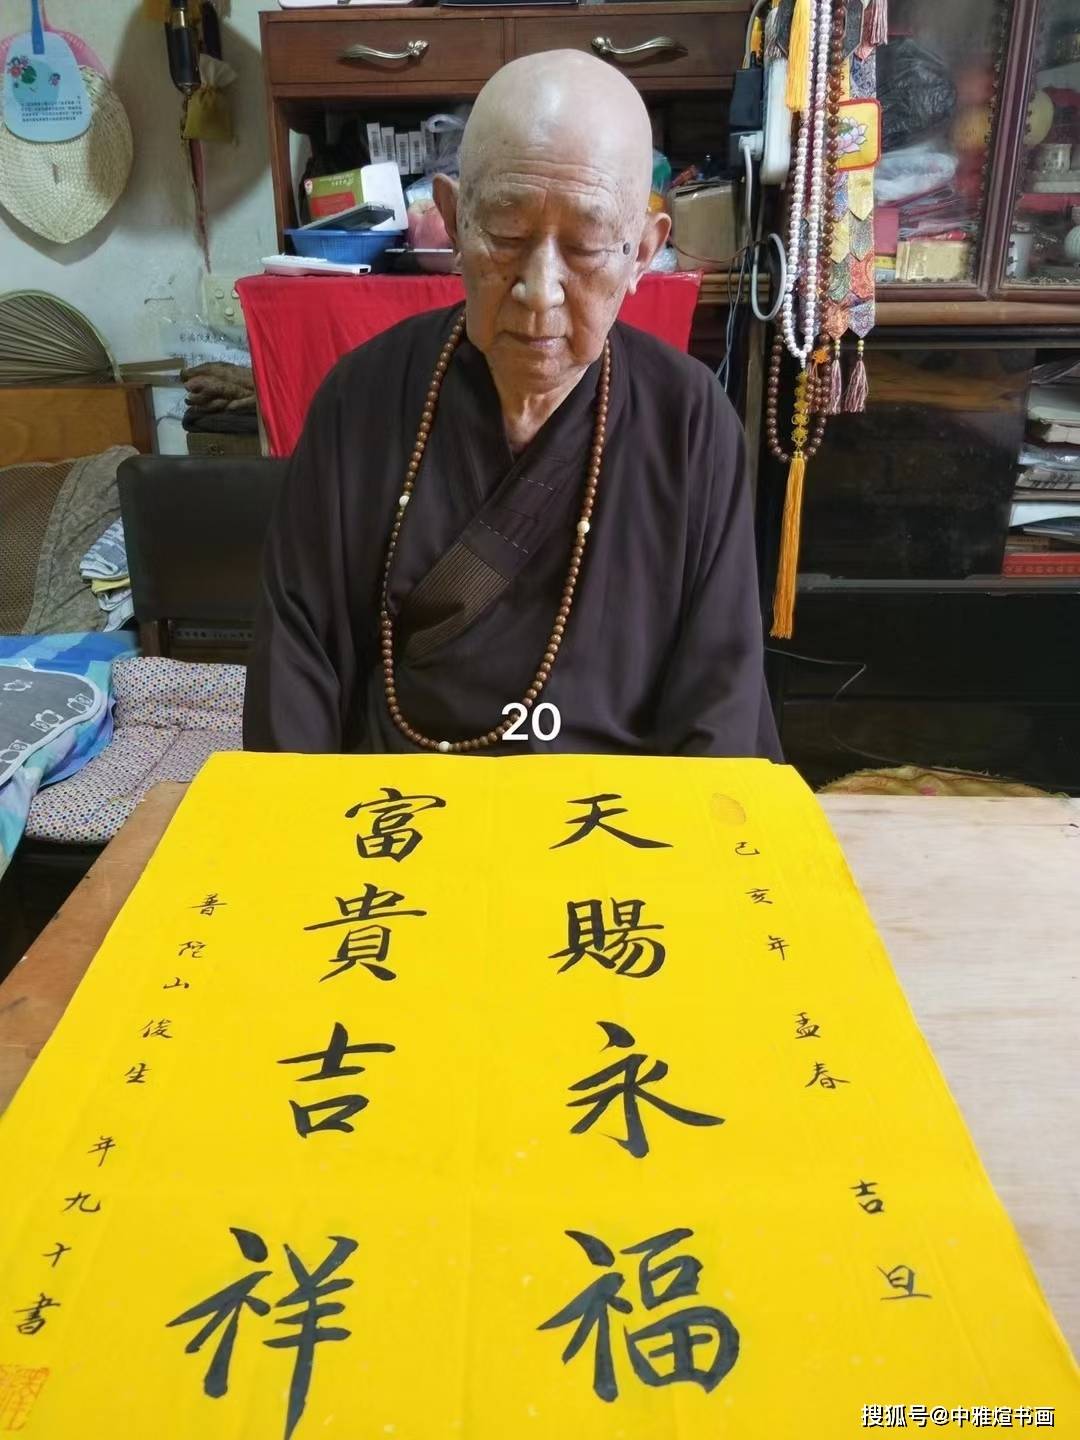 己亥年孟春吉旦
天賜永福
富貴吉祥
普陀山俊生年九十書
20
搜狐号@中雅煊书画